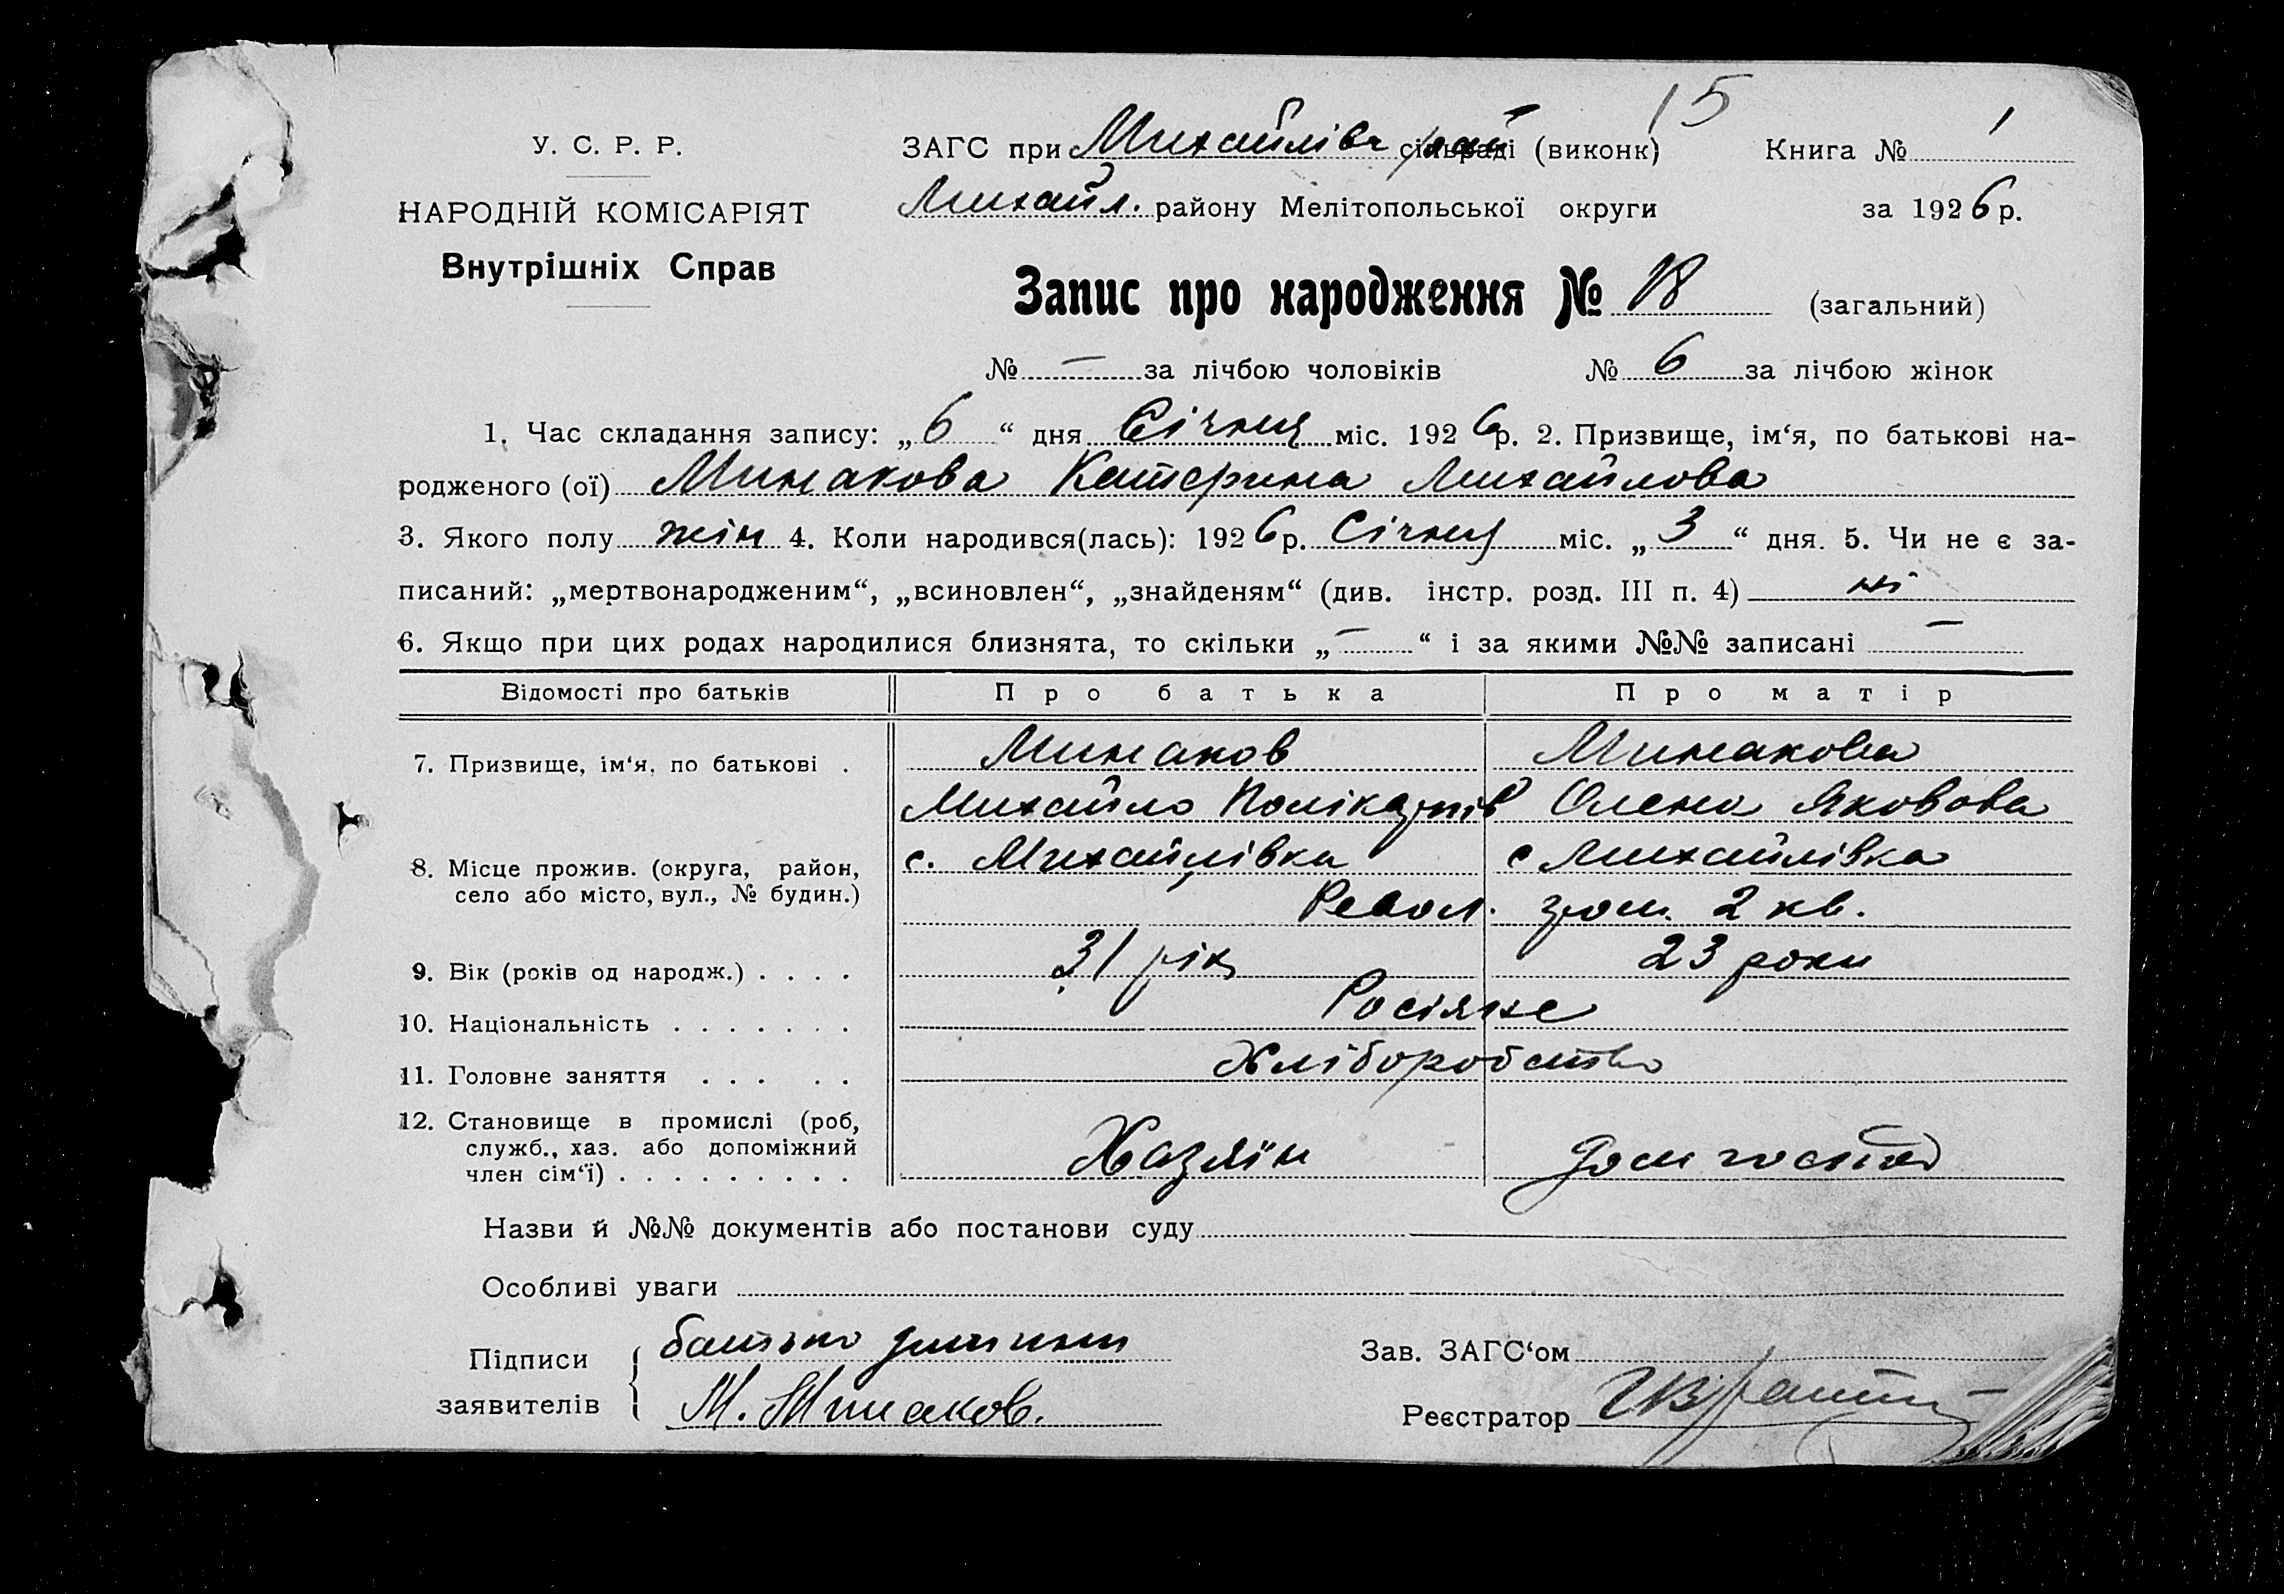 15
У. С. Р. Р.
ЗАГС при Михайлівс рай сільраді (виконк) Книга № 1
НАРОДНІЙ КОМІСАРІЯТ
Михайл. району Мелітопольської округи за 1926 р.
Внутрішніх Справ
Запис про народження № 18 (загальний)
№ — за лічбою чоловіків № 6 за лічбою жінок
1. Час складання запису: „6“ дня Січня міс. 1926 р. 2. Призвище, ім‘я, по батькові на-
родженого (ої) Минакова Катерина Михайлова
3. Якого полу жін 4. Коли народився(лась): 1926 р. Січня міс. „3“ дня. 5. Чи не є за-
писаний: „мертвонародженим“, „всиновлен“, „знайденям“ (див. інстр. розд. III п. 4) ні
6. Якщо при цих родах народилися близнята, то скільки „—“ і за якими №№ записані —
Відомості про батьків Про батька Про матір
7. Призвище, ім‘я, по батькові . Минаков Минакова
Михайло Полікарпів Олена Яковова
8. Місце прожив. (округа, район, с. Михайлівка с Михайлівка
село або місто, вул., № будин.) Револ. гром. 2 кв.
9. Вік (років од народж.) . . . . 31 рік 23 роки
10. Національність . . . . . . . Росіяне
11. Головне заняття . . . . . Хліборобство
12. Становище в промислі (роб,
служб., хаз. або допоміжний
член сім‘ї) . . . . . . . . . Хазяїн дом господ
Назви й №№ документів або постанови суду
Особливі уваги
Підписи батько дитини Зав. ЗАГС‘ом
заявителів М. Минаков. Реєстратор